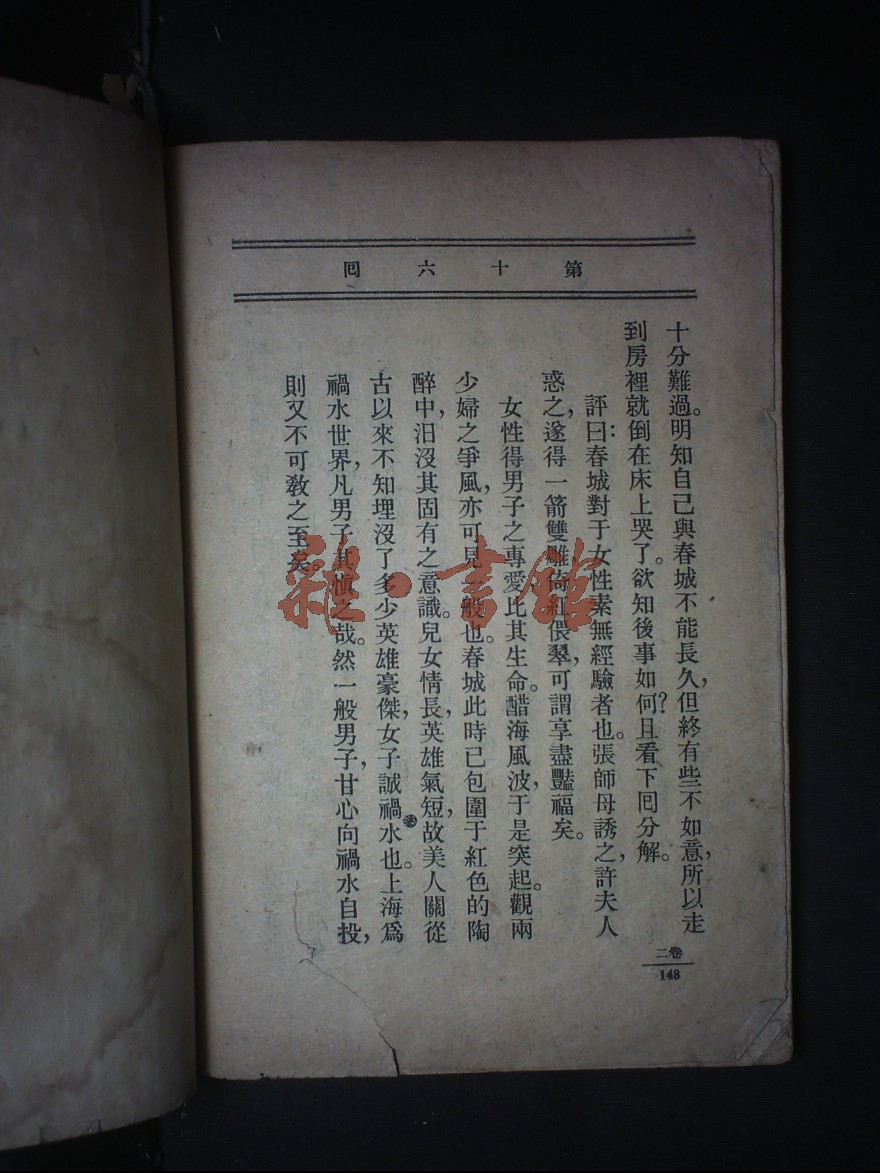 第十六囘
十分難過。明知自己與春城不能長久，但終有些不如意，所以走
到房裡就倒在床上哭了。欲知後事如何？且看下囘分解。
評曰：春城對于女性素無經驗者也。張師母誘之，許夫人
惑之，遂得一箭雙雕，倚紅偎翠，可謂享盡豔福矣。
女性得男子之專愛比其生命。醋海風波，于是突起。觀兩
少婦之爭風，亦可見一般也。春城此時已包圍于紅色的陶
醉中，汨沒其固有之意識。兒女情長，英雄氣短，故美人關從
古以來不知埋沒了多少英雄豪傑，女子誠禍水也。上海爲
禍水世界，凡男子其慎之哉。然一般男子，甘心向禍水自投，
則又不可敎之至矣。
二卷
148
雜·書館